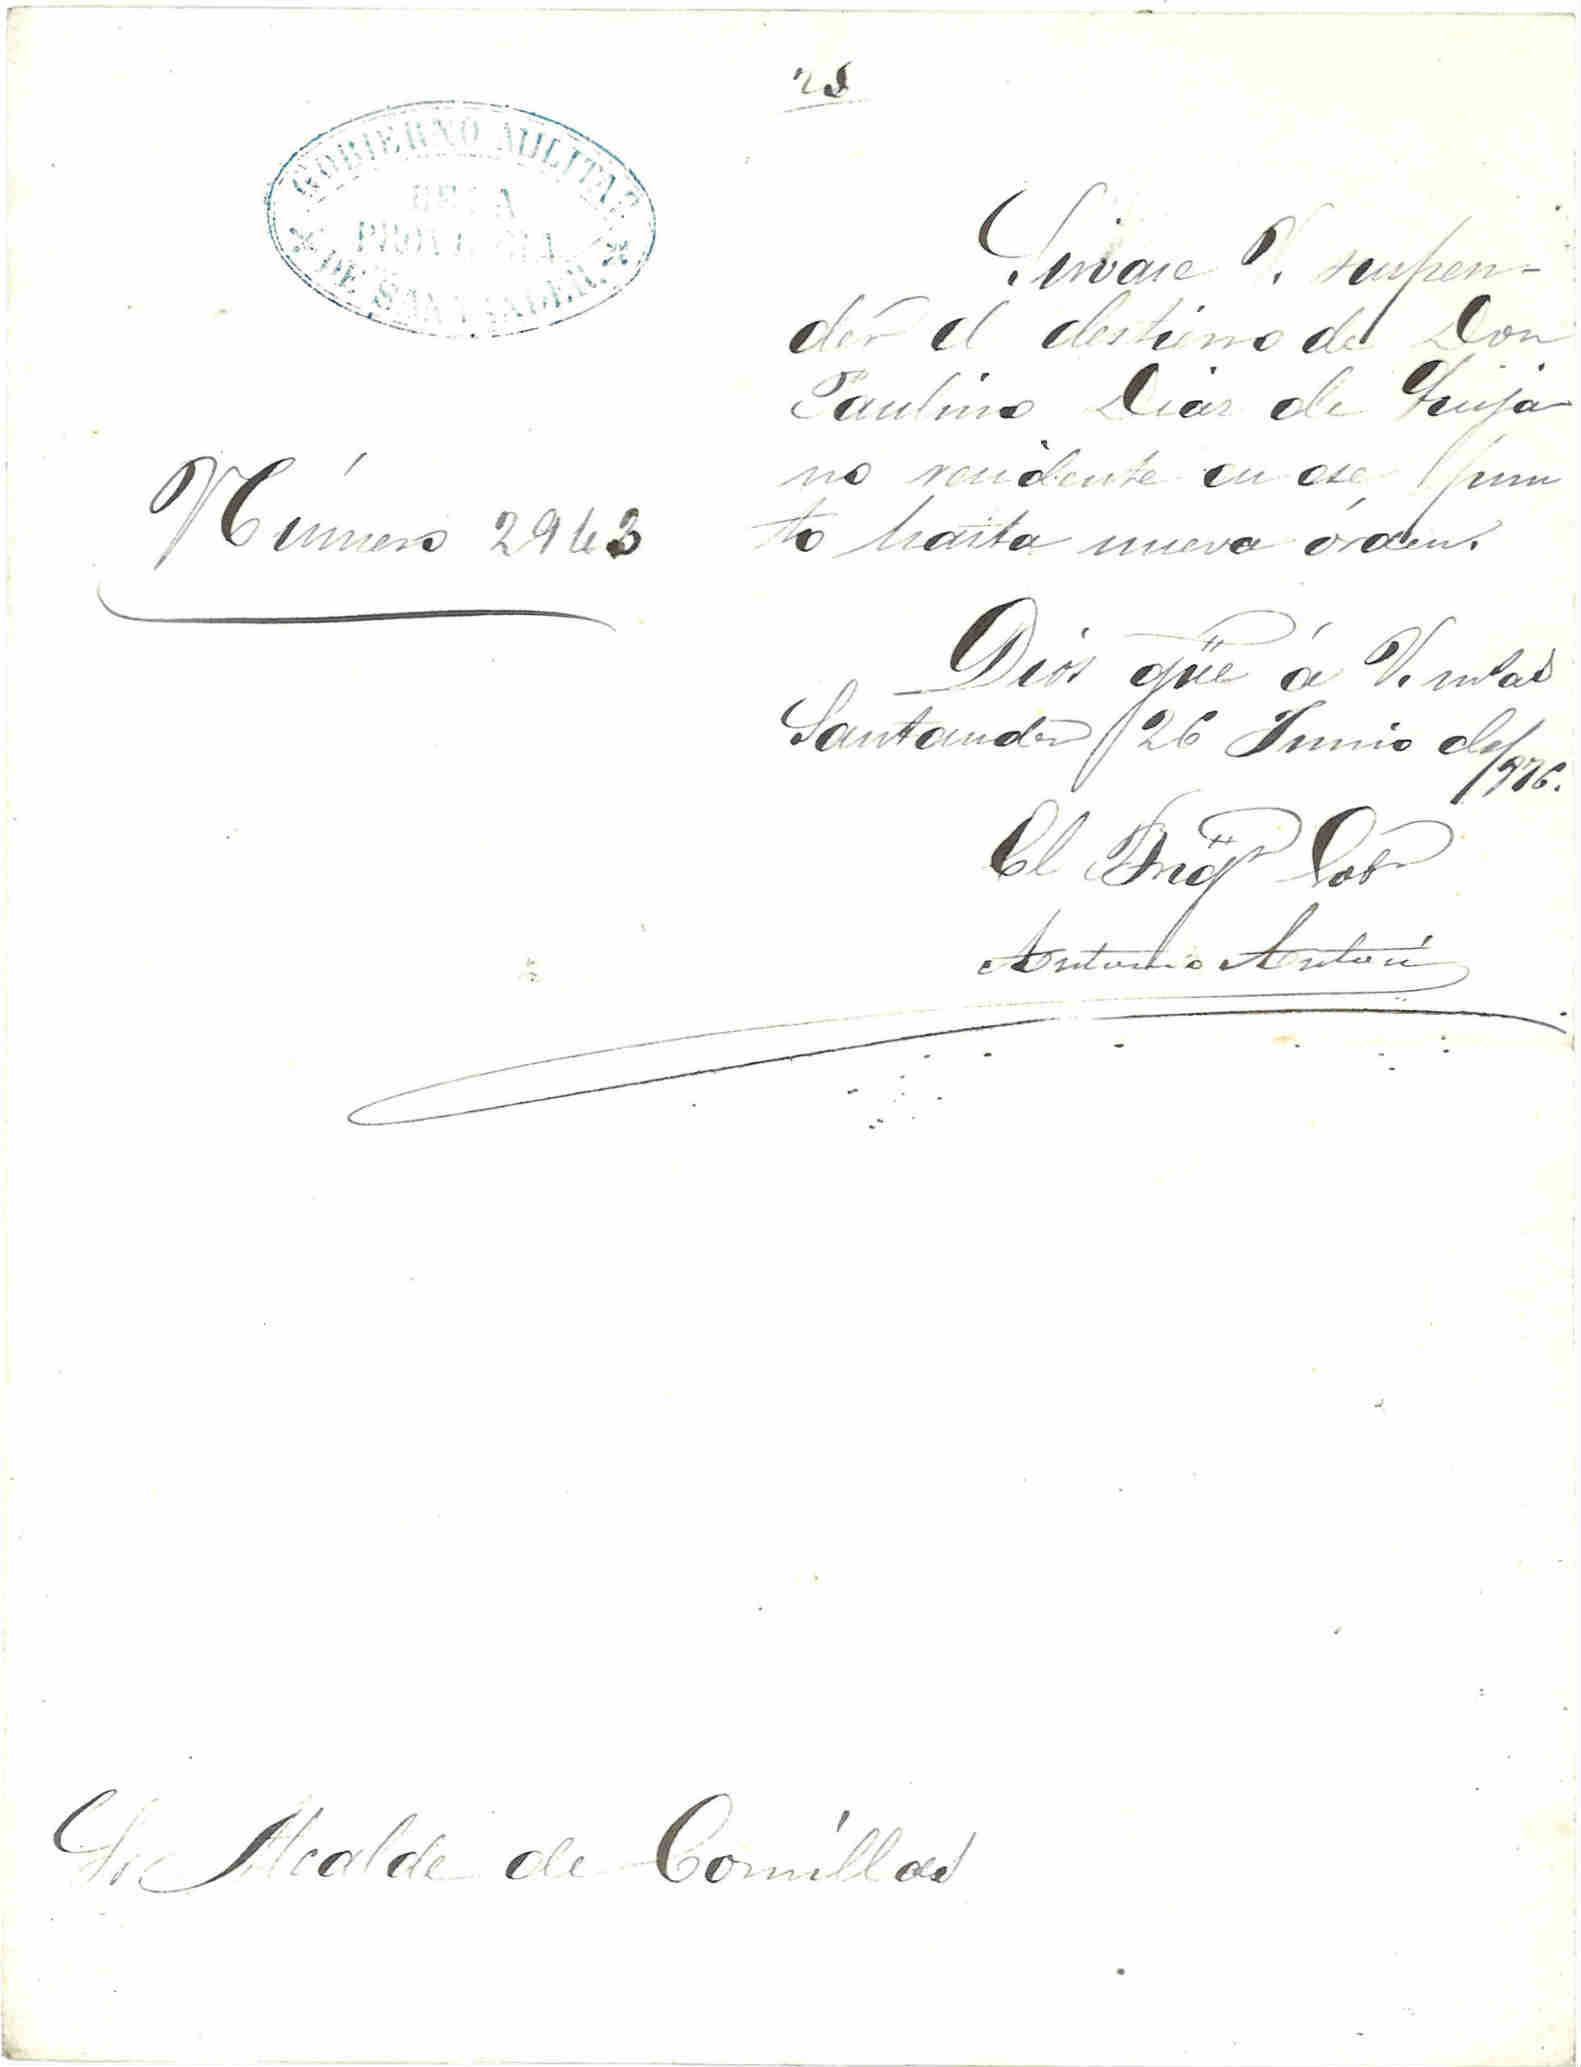 28
GOBIERNO MILITAR
DE LA
PROVINCIA
DE SANTANDER
Sirvase V. suspen-
der el destierro de Don
Paulino Diaz de Quija
no residente en ese pun
to hasta nueva órden.
Número 2943
Dios güe á V. m.s as
Santander 26 Junio de
1876.
El Brigr Gobr
Antonio Anton
Sr Alcalde de Comillas